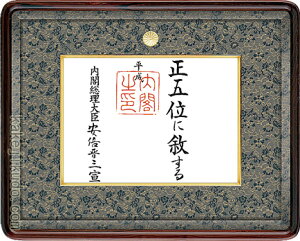 正五位に叙する
平成
内閣之印
内閣総理大臣 安倍晋三宣